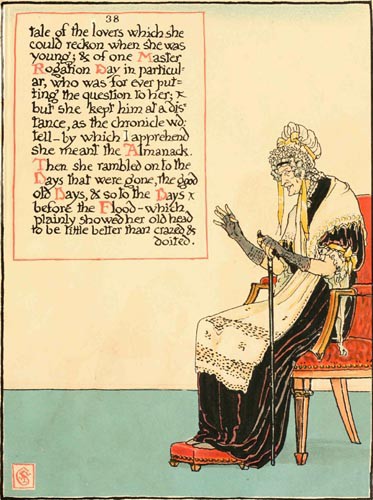 38
tale of the lovers which she
could reckon when she was
young; & of one Master
Rogation Day in particul-
ar, who was for ever put-
ting the question to her; &
but she kept him at a dis
tance, as the chronicle wd:
tell—by which I apprehend
she meant the Almanack.
Then she rambled on to the
Days that were gone, the good
old Days, & so to the Days &
before the Flood—which
plainly showed her old head
to be little better than crazed &
doited.